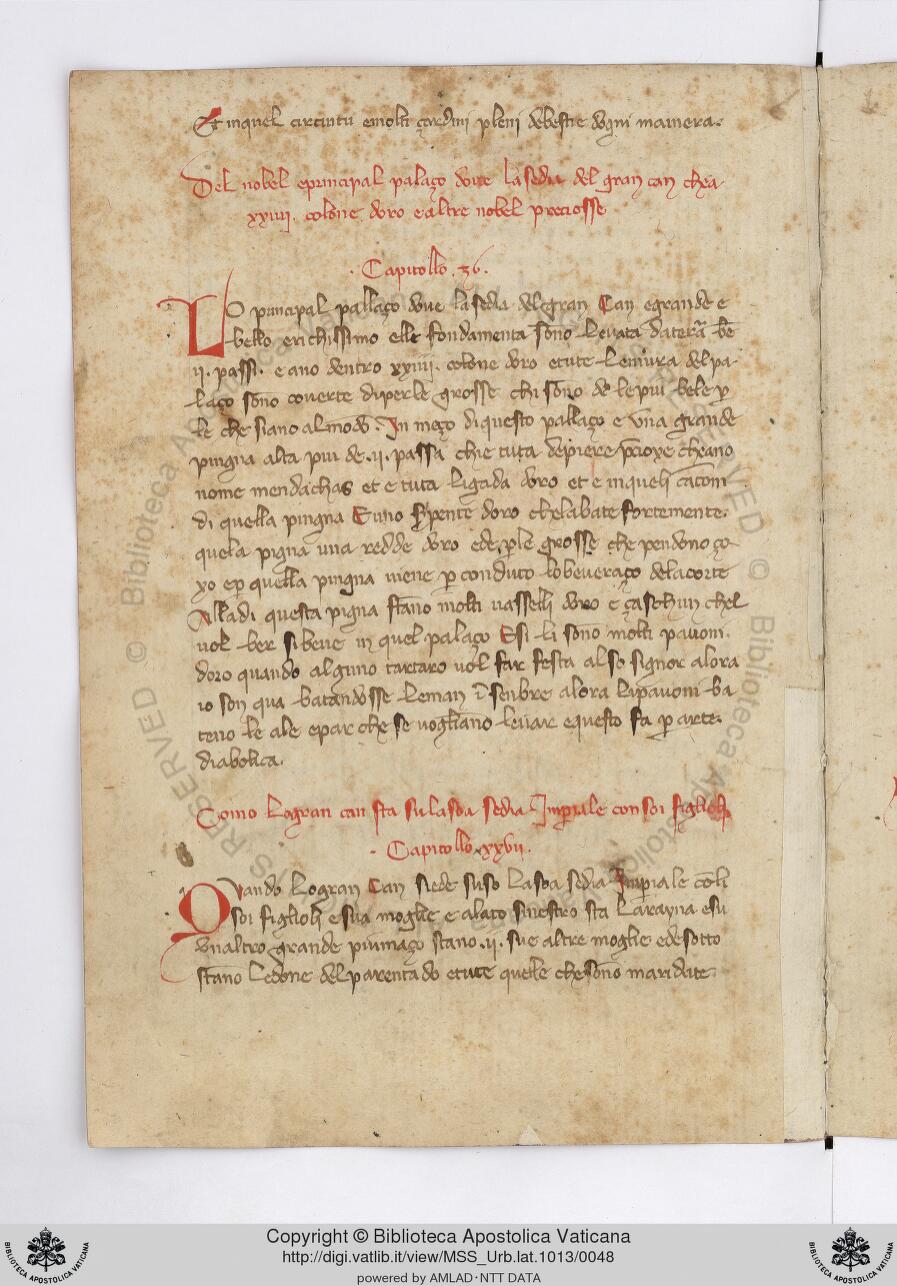 Et inquel circuitu emolti çardini pleni debestie dogni mainera.
Del nobel eprincipal palaço doue lasedia del gran can chea
xxiiii. colone doro e altre nobel preciosse
. Capitollo .36.
LO principal pallaço doue lasedia delgran Can egrande e
bello erichissimo elle fondamenta sono leuata datera be
ii. passi. e ano dentro xxiiii. colone doro etute lemura delpa
laço sono couerte diperle grosse chi sono de le piu bele per
le che siano almondo. In meço diquesto pallaço e vna grande
pingna alta piu de .ii. passa chie tuta depiere precioxe cheano
nome mendachas et e tuta ligada doro et e inqueli cantoni
di quella pingna Euno serpente doro chelabate fortemente.
quela pigna una redde doro ede perle grosse che pendono ço
xo eper quella pingna uiene per conduto lobeueraço delacorte
Alladi questa pigna stano molti uasselli doro e çaschun chel
uol ber sibeue in quel palaço Esi li sono molti pauoni.
doro quando alguno tartaro uol far festa also signor alora
io son qua batandosse leman in senbre alora lipauoni ba
teno le ale epar che se uogliano leuar equesto fa per arte.
diabolica.
Como logran can sta sulasoa sedia Imperiale con soi figlioli
. Capitollo xxvii.
Quando logran Can siede suso lasoa sedia Imperiale conli
soi figlioli e sua moglie e alato sinestro sta larayna e su
vnaltro grande piumaço stano .ii. sue altre moglie ede sotto
stano ledone del parentado etute quelle che sono maridate.
Copyright © Biblioteca Apostolica Vaticana
http://digi.vatlib.it/view/MSS_Urb.lat.1013/0048
powered by AMLAD · NTT DATA
BIBLIOTECA APOSTOLICA VATICANA
BIBLIOTECA APOSTOLICA VATICANA